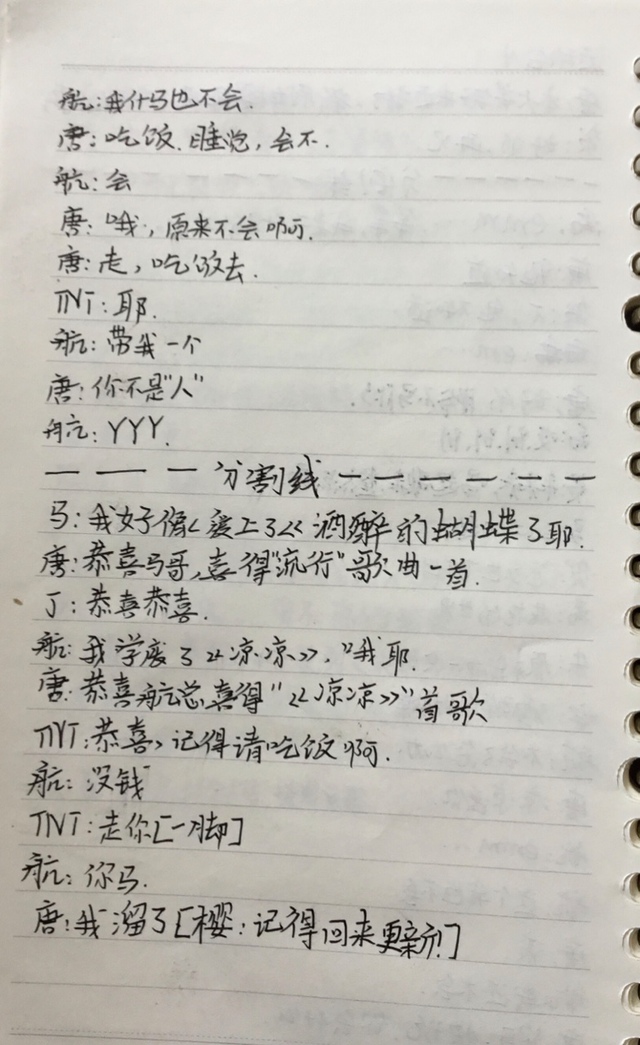 航:我什马也不会.
唐:吃饭、睡觉,会不.
航:会
唐:哦,原来不会啊.
唐:走,吃饭去.
TNT:耶.
航:带我一个
唐:你不是"人"
航:YYY.
— — — 分割线 — — — — — —
马:我好像<爱上了<<酒醉的蝴蝶了耶.
唐:恭喜马哥,喜得"流行"歌曲一首.
丁:恭喜恭喜.
航:我学废了《凉凉》,哦耶.
唐:恭喜航总,喜得"《凉凉》"首歌
TNT:恭喜,记得请吃饭啊.
航:没钱
TNT:走你[一脚]
航:你马.
唐:我溜了[樱:记得回来更新!]